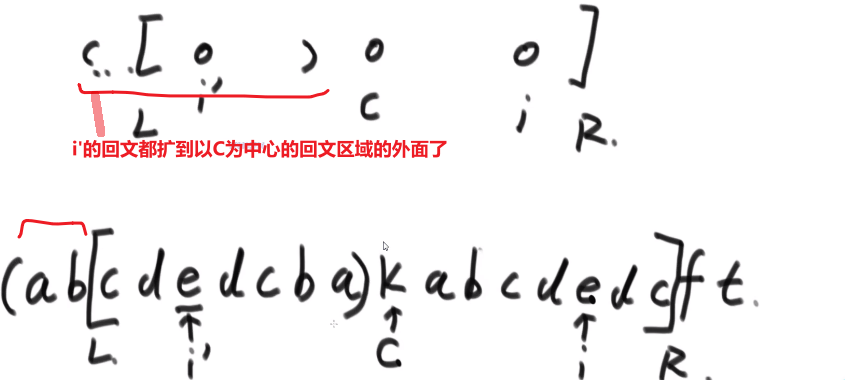 (.. [ o ) o o ]
L i' C i R.
i'的回文都扩到以C为中心的回文区域的外面了
(ab[cdedcba)kabcdedc]ft.
L. i' C. i R.